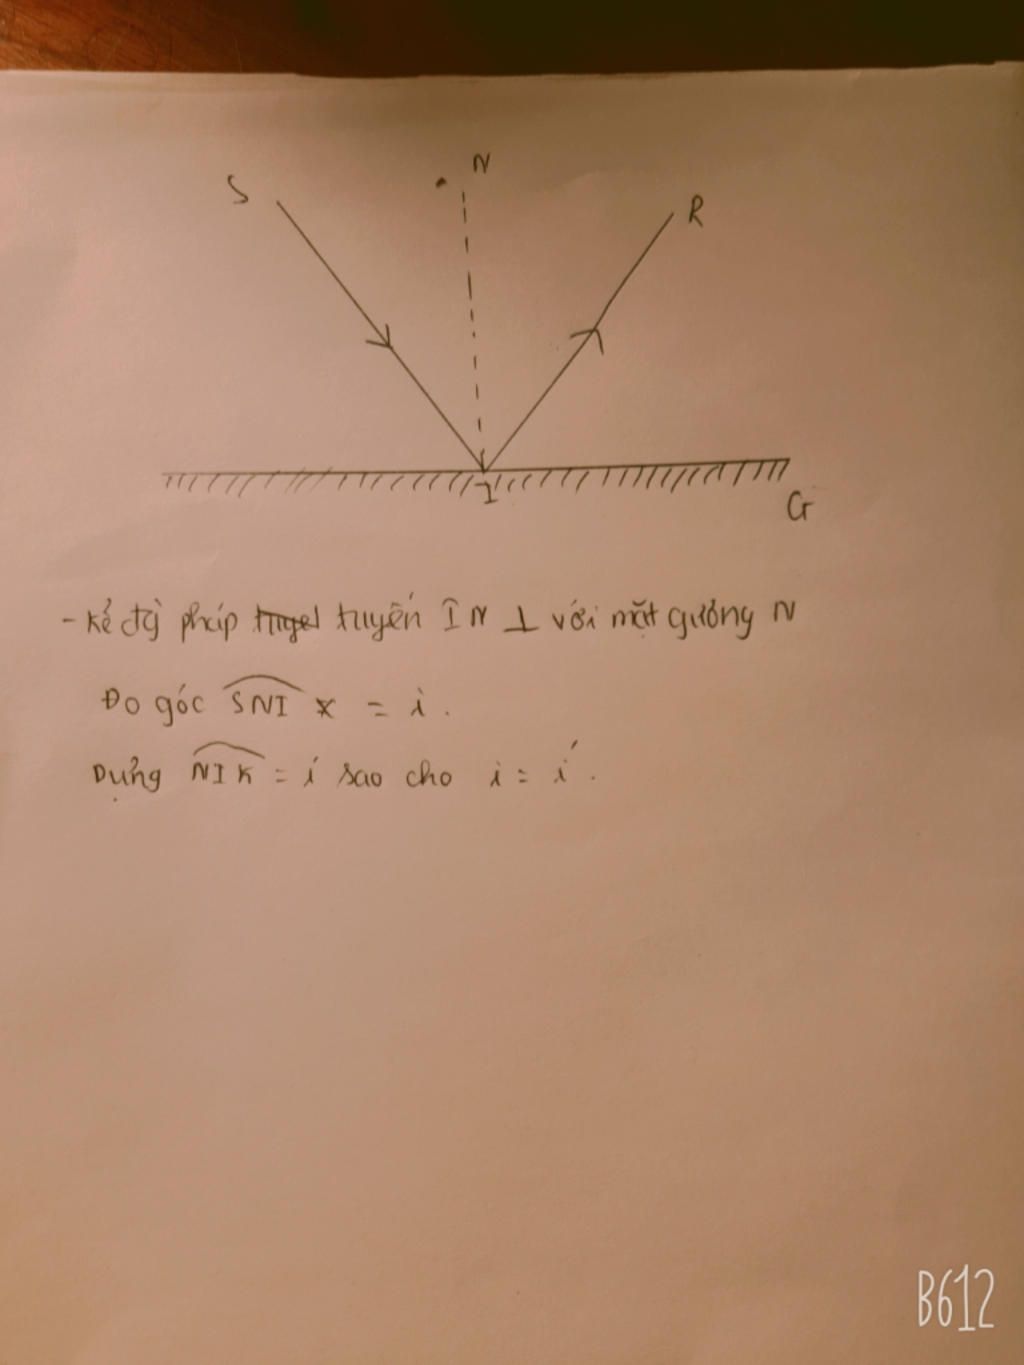 S
N
R
I
G
- kẻ đg pháp tuyến IN ⊥ với mặt gưởng N
Đo góc SNI = i.
Dựng NIK = i' sao cho i = i'.
B612